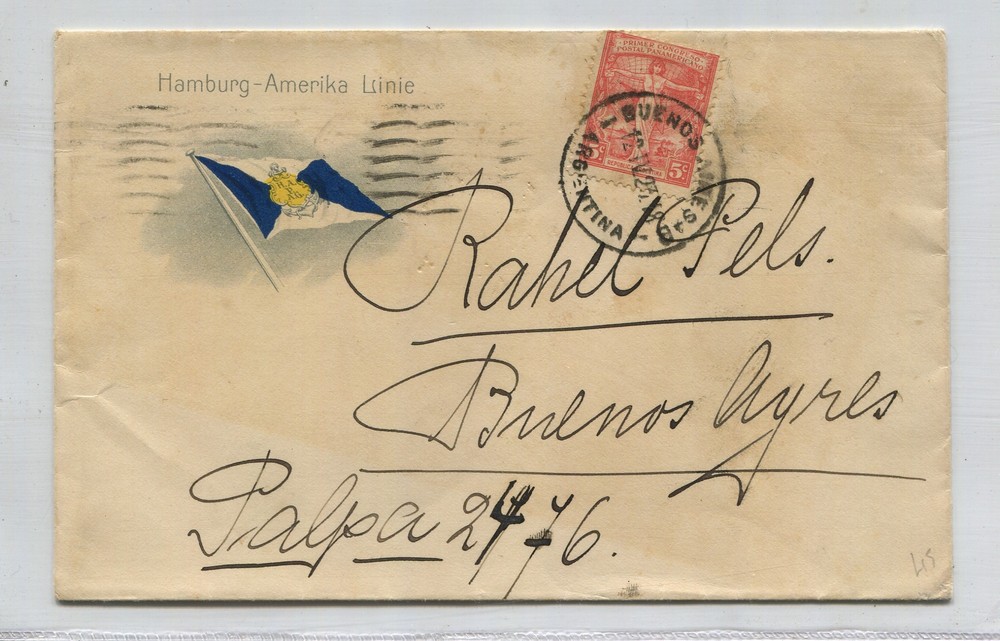 Hamburg-Amerika Linie
PRIMER CONGRESO
POSTAL PANAMERICANO
5c
BUENOS AIRES
ARGENTINA
Rahel Pels.
Buenos Ayres
Palpa 2476.
45